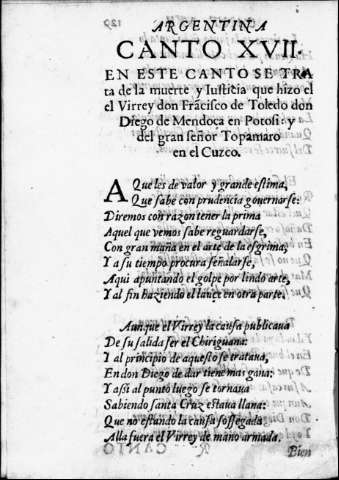 ARGENTINA
CANTO XVII.
EN ESTE CANTO SE TRA
ta de la muerte y Iusticia que hizo el
el Virrey don Frãcisco de Toledo don
Diego de Mendoça en Potosi: y
del gran señor Topamaro
en el Cuzco.
AQuel es de valor y grande estima,
Que sabe con prudencia governarse:
Diremos con razon tener la prima
Aquel que vemos sabe reguardarse,
Con gran maña en el arte de la esgrima;
Y a su tiempo procura señalarse,
Aqui apuntando el golpe por lindo arte,
Y al fin haziendo el lance en otra parte.
Aunque el Virrey la causa publicava
De su salida ser el Chiriguana:
Y al principio de aquesto se tratava,
En don Diego de dar tiene mas gana:
Y assi al punto luego se tornava
Sabiendo santa Cruz estava llana:
Que no estando la chusma sossegada
Alla fuera el Virrey de mano armada.
Bien